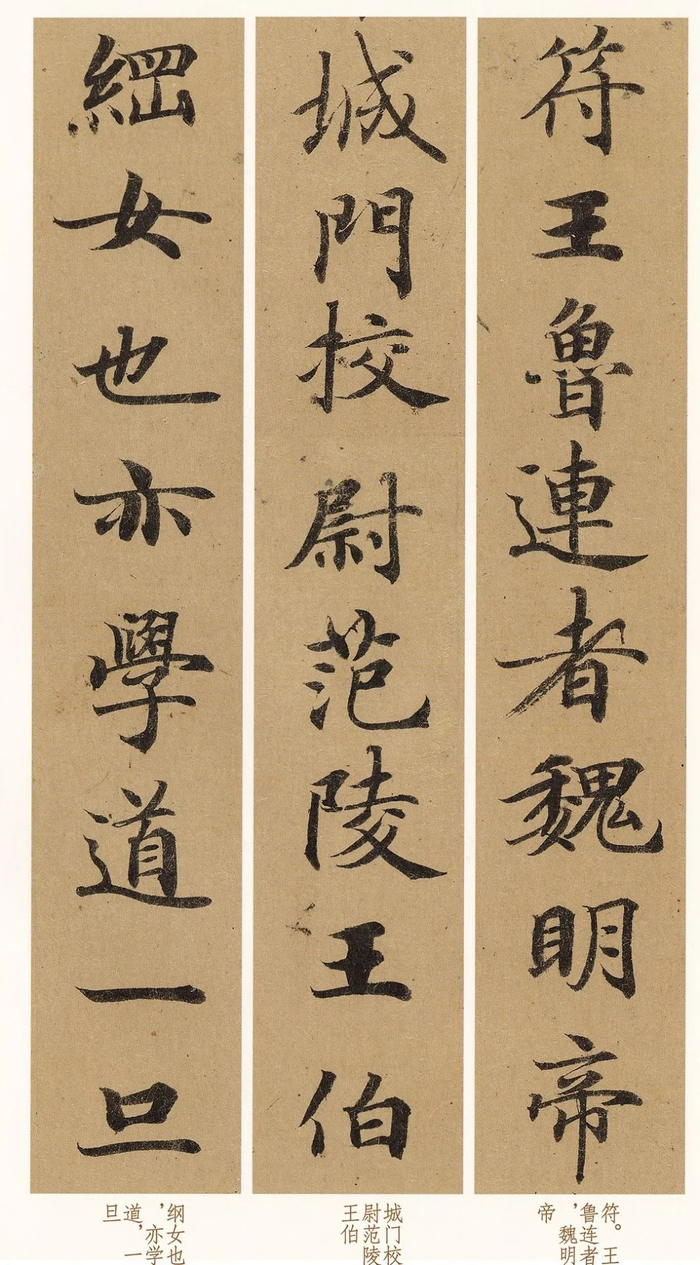 符王魯連者魏明帝
城門挍尉范陵王伯
綱女也亦學道一旦
符。王
鲁连者
，魏明
帝
城门校
尉范陵
王伯
纲女也
，亦学
道，一
旦